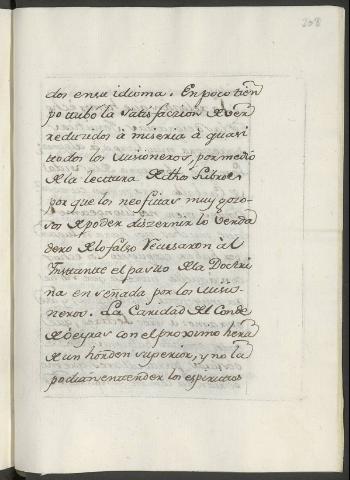 208
dos en su idioma. En poco tiem
po tubo la satisfaccion de ver
reducidos à miseria à quasi
todos los misioneros, por medio
de la lectura de dhos Libros,
por que los neofitas muy gozo-
sos de poder diszernir lo verda
dero de lo falso Recusaron al
Instante el pasto de la Doctri
na enseñada por los misio-
neros. La Caridad del Conde
de Oeyras con el proximo hera
de un horden superior, y no la
podian entender los espiritus